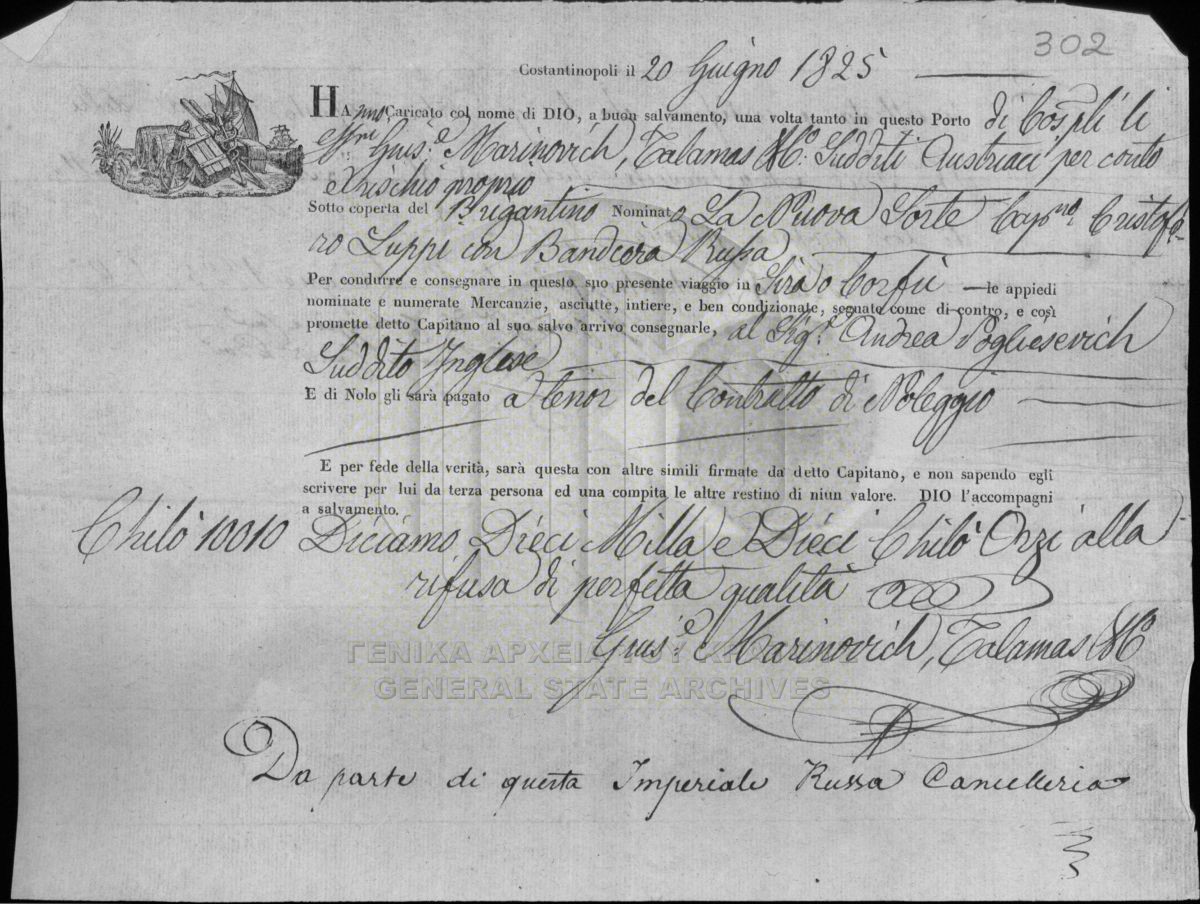 302
Costantinopoli il 20 Giugno 1825
HAnno Caricato col nome di DIO, a buon salvamento, una volta tanto in questo Porto di Cospli li
Ssri Guis.e Marinovich, Talamas & Co. Sudditi Austriaci per conto
e rischio proprio
Sotto coperta del Brigantino Nominato La Nuova Sorte Capno. Cristofo-
ro Luppi con Bandiera Russa
Per condurre e consegnare in questo suo presente viaggio in Sira o Corfù —le appiedi
nominate e numerate Mercanzie, asciutte, intiere, e ben condizionate, segnate come di contro, e così
promette detto Capitano al suo salvo arrivo consegnarle, al Sigr. Andrea Pogliesevich
Suddito Inglese
E di Nolo gli sarà pagato a tenor del Contratto di Noleggio
E per fede della verità, sarà questa con altre simili firmate da detto Capitano, e non sapendo egli
scrivere per lui da terza persona ed una compita le altre restino di niun valore. DIO l'accompagni
a salvamento.
Chilò 10010 Diciamo Dieci Milla e Dieci Chilò Orzi alla
rifusa di perfetta qualità
Guis.e Marinovich, Talamas & Co
ΓΕΝΙΚΑ ΑΡΧΕΙΑ ΤΟΥ ΚΡΑΤΟΥΣ
GENERAL STATE ARCHIVES
Da parte di questa Imperiale Russa Cancelleria